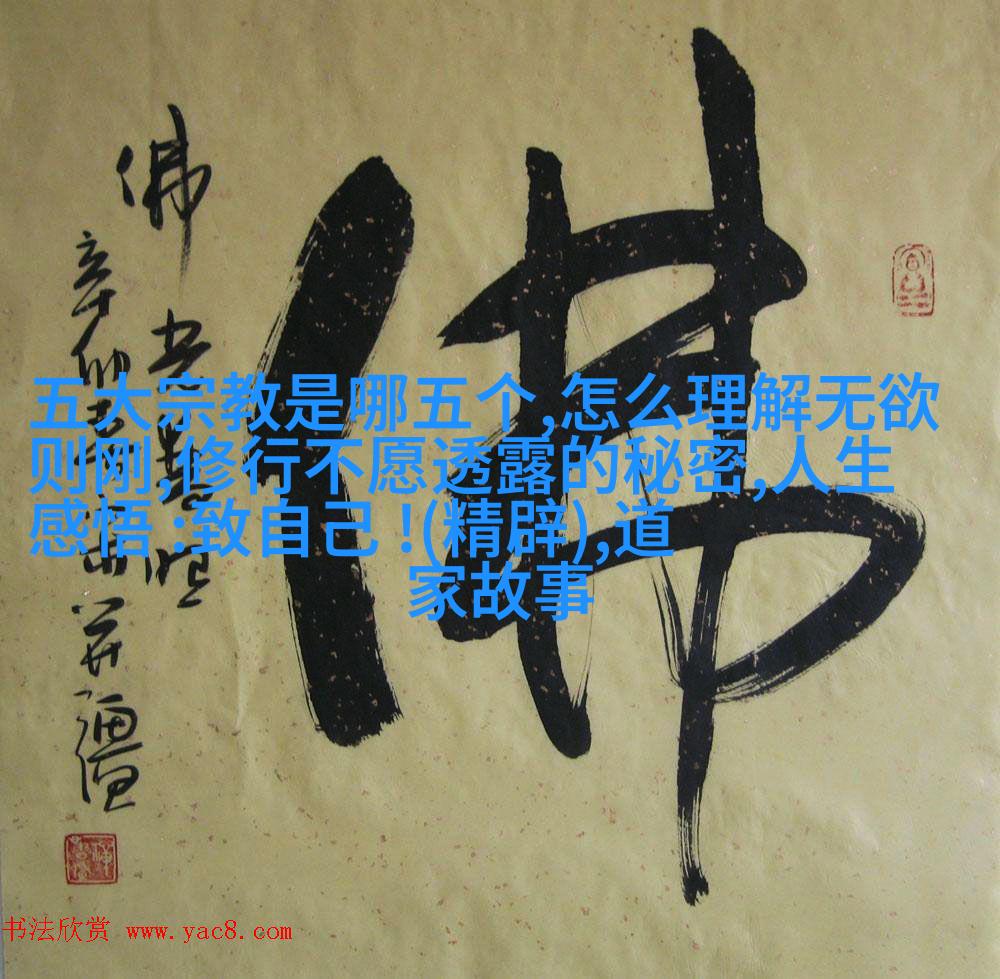 佛
佛
辛卯
五大宗教是哪五个,怎么理解无欲
则刚,修行不愿透露的秘密,人生
感悟 :致自己 !(精辟),道
家故事
书法欣赏 www.yac8.com